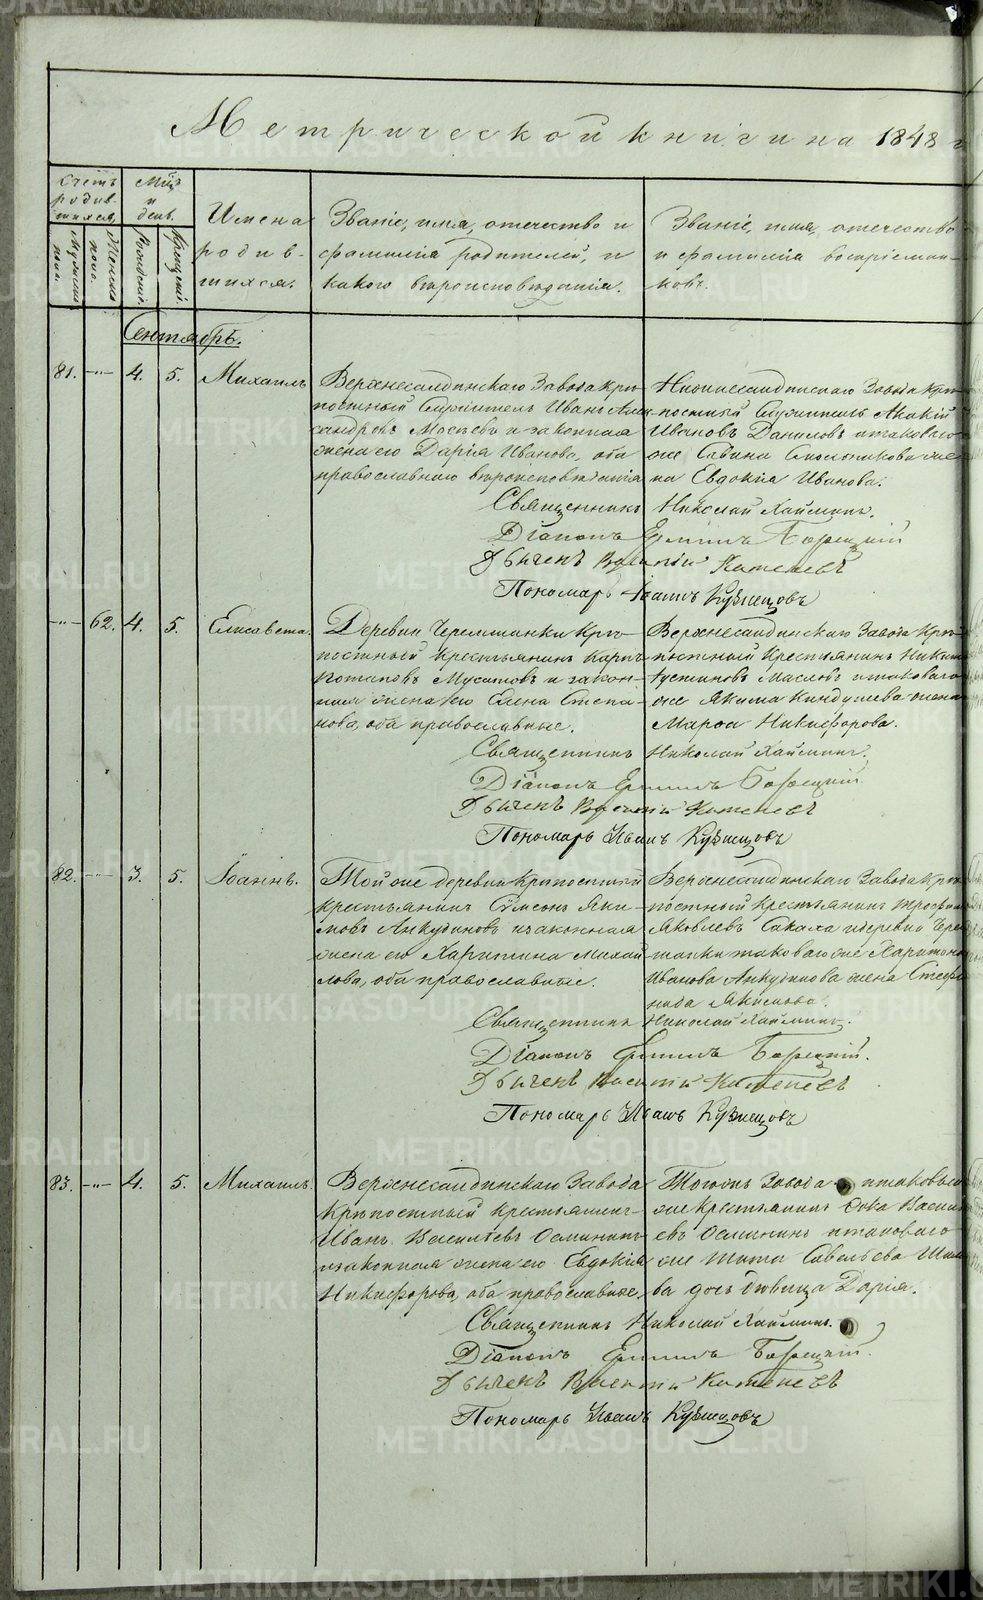 Метрической книги на 1848 г
Счетъ родившихся
Мужеска пола.
Женска пола.
Мцъ и день.
Рожденiе.
Крещенiе.
Имена родившихся.
Званiе, имя, отечество и
фамилiя родителей, и
какого вѣроисповѣданiя.
Званiе, имя, отечество
и фамилiя воспрiемни-
ковъ.
Сентябрь.
81. -"- 4. 5. Михаилъ
Верхнесалдинскаго Завода крѣ-
постный Служитель Иванъ Алек
сандровъ и законная
жена его Дарiя Иванова, оба
православнаго вѣроисповѣданiя
Нижнесалдинскаго Завода крѣ-
постный Служитель Акакiй
Ивановъ Даниловъ и таковаго
же Савина жe-
на Евдокiя Иванова.
Священникъ Николай Хлынинъ.
Дiаконъ Ермилъ Борецкiй
Дьячекъ Василiй Катеневъ
Пономарь Иванъ Кузнецовъ
-"- 62. 4. 5. Елисавета.
Деревни Черемшанки Крѣ-
постный крестьянинъ Карпъ
Потаповъ Мусатовъ и закон-
ная жена его Елена Степа-
нова, оба православные.
Верхнесалдинскаго Завода Крѣ-
постный Крестьянинъ Никита
Густиновъ Масловъ и таковаго
же Якима жена
Марѳа Никифорова.
Священникъ Николай Хлынинъ.
Дiаконъ Ермилъ Борецкiй.
Дьячекъ Василiй Катеневъ
Пономарь Иванъ Кузнецовъ
82. -"- 3. 5. Iоаннъ.
Той же деревни крѣпостный
крестьянинъ Сумеонъ Яки-
мовъ Анкудиновъ и законная
жена его Харитина Михай
лова, оба православные.
Верхнесалдинскаго Завода Крѣ-
постный крестьянинъ Трофимъ
Яковлевъ и деревни Чере
шанки таковаго же Харитона
Иванова Анкудинова жена Стефа
нида Якимова.
Священникъ Николай Хлынинъ.
Дiаконъ Ермилъ Борецкiй.
Дьячекъ Василiй Катеневъ
Пономарь Иванъ Кузнецовъ
83. -"- 4. 5. Михаилъ.
Верхнесалдинскаго Завода
Крѣпостный крестьянинъ
Иванъ Васильевъ Осмининъ
и законная жена его Евдокiя
Никифорова, оба православные.
Тогожъ Завода и таковый
же крестьянинъ Васили
евъ Осмининъ и таковаго
же Тита Савельева
ва дочь девица Дарiя.
Священникъ Николай Хлынинъ.
Дiаконъ Ермилъ Борецкiй.
Дьячекъ Василiй Катеневъ
Пономарь Иванъ Кузнецовъ
METRIKI.GASO-URAL.RU